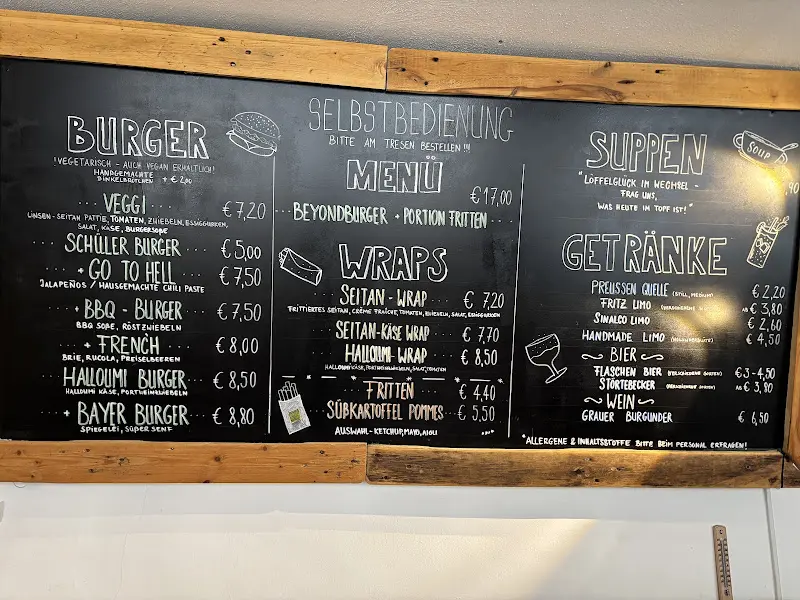 BURGER
!VEGETARISCH - AUCH VEGAN ERHÄLTLICH!
HANDGEMACHTE
DINKELBRÖTCHEN + € 2,00
VEGGI € 7,20
LINSEN-SEITAN PATTIE, TOMATEN, ZWIEBELN, ESSIGGURKEN,
SALAT, KÄSE, BURGERSOßE
SCHÜLER BURGER € 5,00
+ GO TO HELL € 7,50
JALAPEÑOS / HAUSGEMACHTE CHILI PASTE
+ BBQ - BURGER € 7,50
BBQ SOßE, RÖSTZWIEBELN
+ FRENCH € 8,00
BRIE, RUCOLA, PREISELBEEREN
HALLOUMI BURGER € 8,50
HALLOUMI KÄSE, PORTWEINZWIEBELN
+ BAYER BURGER € 8,80
SPIEGELEI, SÜßER SENF
SELBSTBEDIENUNG
BITTE AM TRESEN BESTELLEN !!!
MENÜ
€ 17,00
BEYONDBURGER + PORTION FRITTEN
WRAPS
SEITAN - WRAP € 7,20
FRITTIERTES SEITAN, CRÈME FRAÎCHE, TOMATEN, ZWIEBELN, SALAT, ESSIGGURKEN
SEITAN-KÄSE WRAP € 7,70
HALLOUMI-WRAP € 8,50
HALLOUMI KÄSE, PORTWEINZWIEBELN, SALAT, TOMATEN
FRITTEN € 4,40
SÜßKARTOFFEL POMMES € 5,50
AUSWAHL - KETCHUP, MAYO, AIOLI
SUPPEN
SOUP
"LÖFFELGLÜCK IM WECHSEL -
FRAG UNS,
WAS HEUTE IM TOPF IST!"
,90
GETRÄNKE
PREUSSEN QUELLE (STILL, MEDIUM) € 2,20
FRITZ LIMO (VERSCHIEDENE SORTEN) AB € 3,80
SINALCO LIMO € 2,60
HANDMADE LIMO € 4,50
BIER
FLASCHEN BIER (VERSCHIEDENE SORTEN) € 3 - 4,50
STÖRTEBECKER (VERSCHIEDENE SORTEN) AB € 3,80
WEIN
GRAUER BURGUNDER € 6,50
*ALLERGENE & INHALTSSTOFFE BITTE BEIM PERSONAL ERFRAGEN!